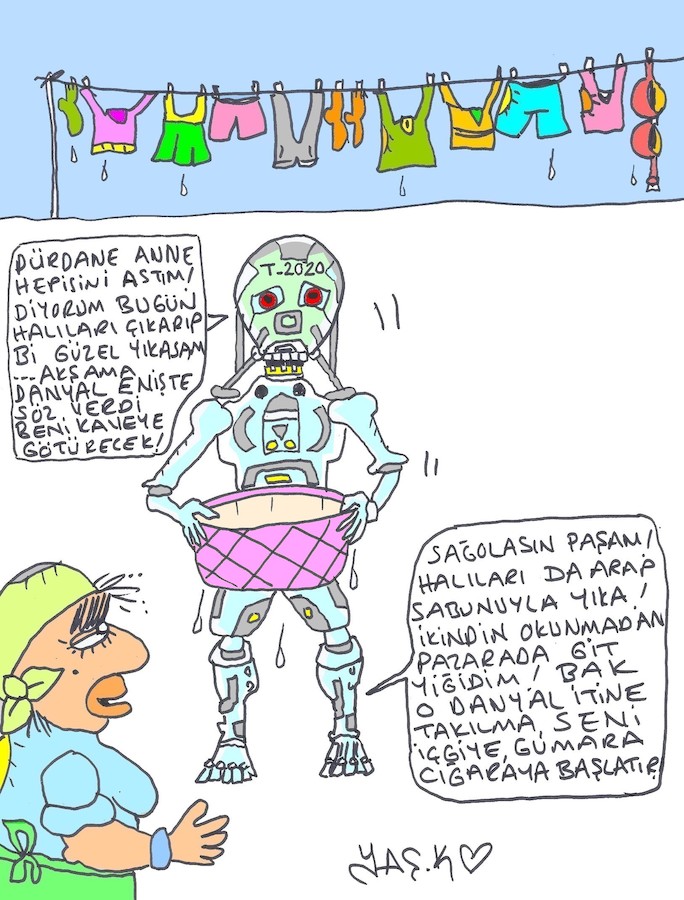 DÜRDANE ANNE
HEPİSİNİ ASTIM!
DİYORUM BUGÜN
HALILARI ÇIKARIP
Bİ GÜZEL YIKASAM
...AKŞAMA
DANYAL ENİŞTE
SÖZ VERDİ
BENİ KAVEYE
GÖTÜRECEK!
T-2020
SAĞOLASIN PAŞAM!
HALILARI DA ARAP
SABUNUYLA YIKA!
İKİNDİN OKUNMADAN
PAZARADA GİT
YİĞİDİM! BAK
O DANYAL İTİNE
TAKILMA, SENİ
İÇGİYE, GUMARA
CIĞARAYA BAŞLATIR!
YAŞ.K